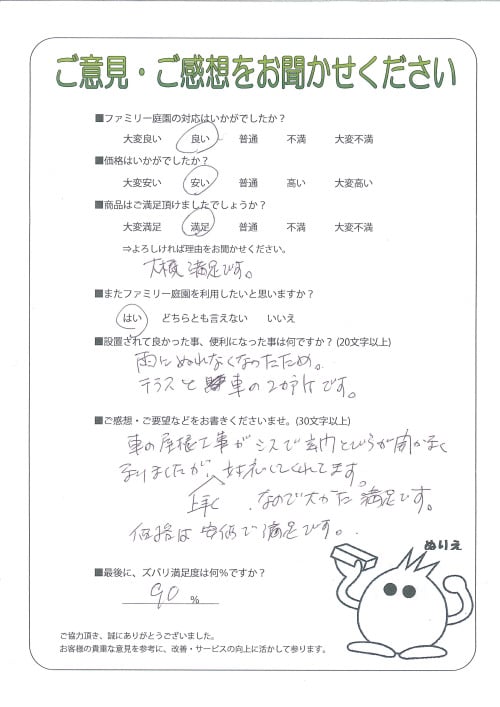 ご意見・ご感想をお聞かせください
■ファミリー庭園の対応はいかがでしたか？
大変良い 良い 普通 不満 大変不満
■価格はいかがでしたか？
大変安い 安い 普通 高い 大変高い
■商品はご満足頂けましたでしょうか？
大変満足 満足 普通 不満 大変不満
⇒よろしければ理由をお聞かせください。
大検 満足です。
■またファミリー庭園を利用したいと思いますか？
はい どちらとも言えない いいえ
■設置されて良かった事、便利になった事は何ですか？(20文字以上)
雨にぬれなくなったため。
テラスと車の2か所です。
■ご感想・ご要望などをお書きくださいませ。(30文字以上)
車の屋根工事がミスで玄関とびらが開かなく
なりましたが、対応してくれてます。
早く なので大かた満足です。
価格は安価で満足です。
ぬりえ
■最後に、ズバリ満足度は何％ですか？
90 ％
ご協力頂き、誠にありがとうございました。
お客様の貴重な意見を参考に、改善・サービスの向上に活かして参ります。